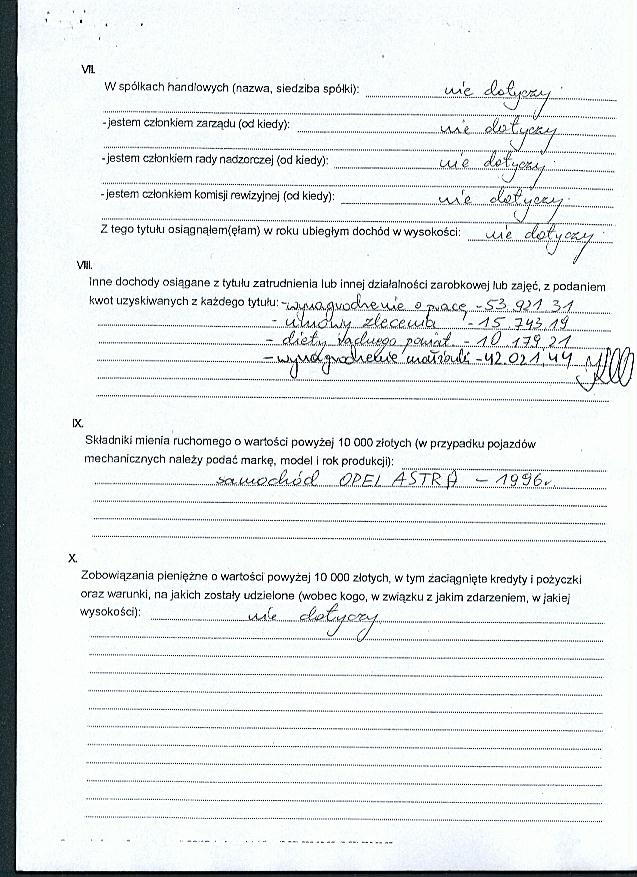 VII.
W spółkach handlowych (nazwa, siedziba spółki): nie dotyczy
- jestem członkiem zarządu (od kiedy): nie dotyczy
- jestem członkiem rady nadzorczej (od kiedy): nie dotyczy
- jestem członkiem komisji rewizyjnej (od kiedy): nie dotyczy
Z tego tytułu osiągnąłem(ęłam) w roku ubiegłym dochód w wysokości: nie dotyczy
VIII.
Inne dochody osiągane z tytułu zatrudnienia lub innej działalności zarobkowej lub zajęć, z podaniem
kwot uzyskiwanych z każdego tytułu: - wynagrodzenie o pracę - 53 921 31
- umowy zlecenia - 15 743 19
- diety radnego powiat - 10 179 21
- wynagrodzenie małżonki - 42.021,44
IX.
Składniki mienia ruchomego o wartości powyżej 10 000 złotych (w przypadku pojazdów
mechanicznych należy podać markę, model i rok produkcji):
samochód OPEL ASTRA - 1996r.
X.
Zobowiązania pieniężne o wartości powyżej 10 000 złotych, w tym zaciągnięte kredyty i pożyczki
oraz warunki, na jakich zostały udzielone (wobec kogo, w związku z jakim zdarzeniem, w jakiej
wysokości): nie dotyczy